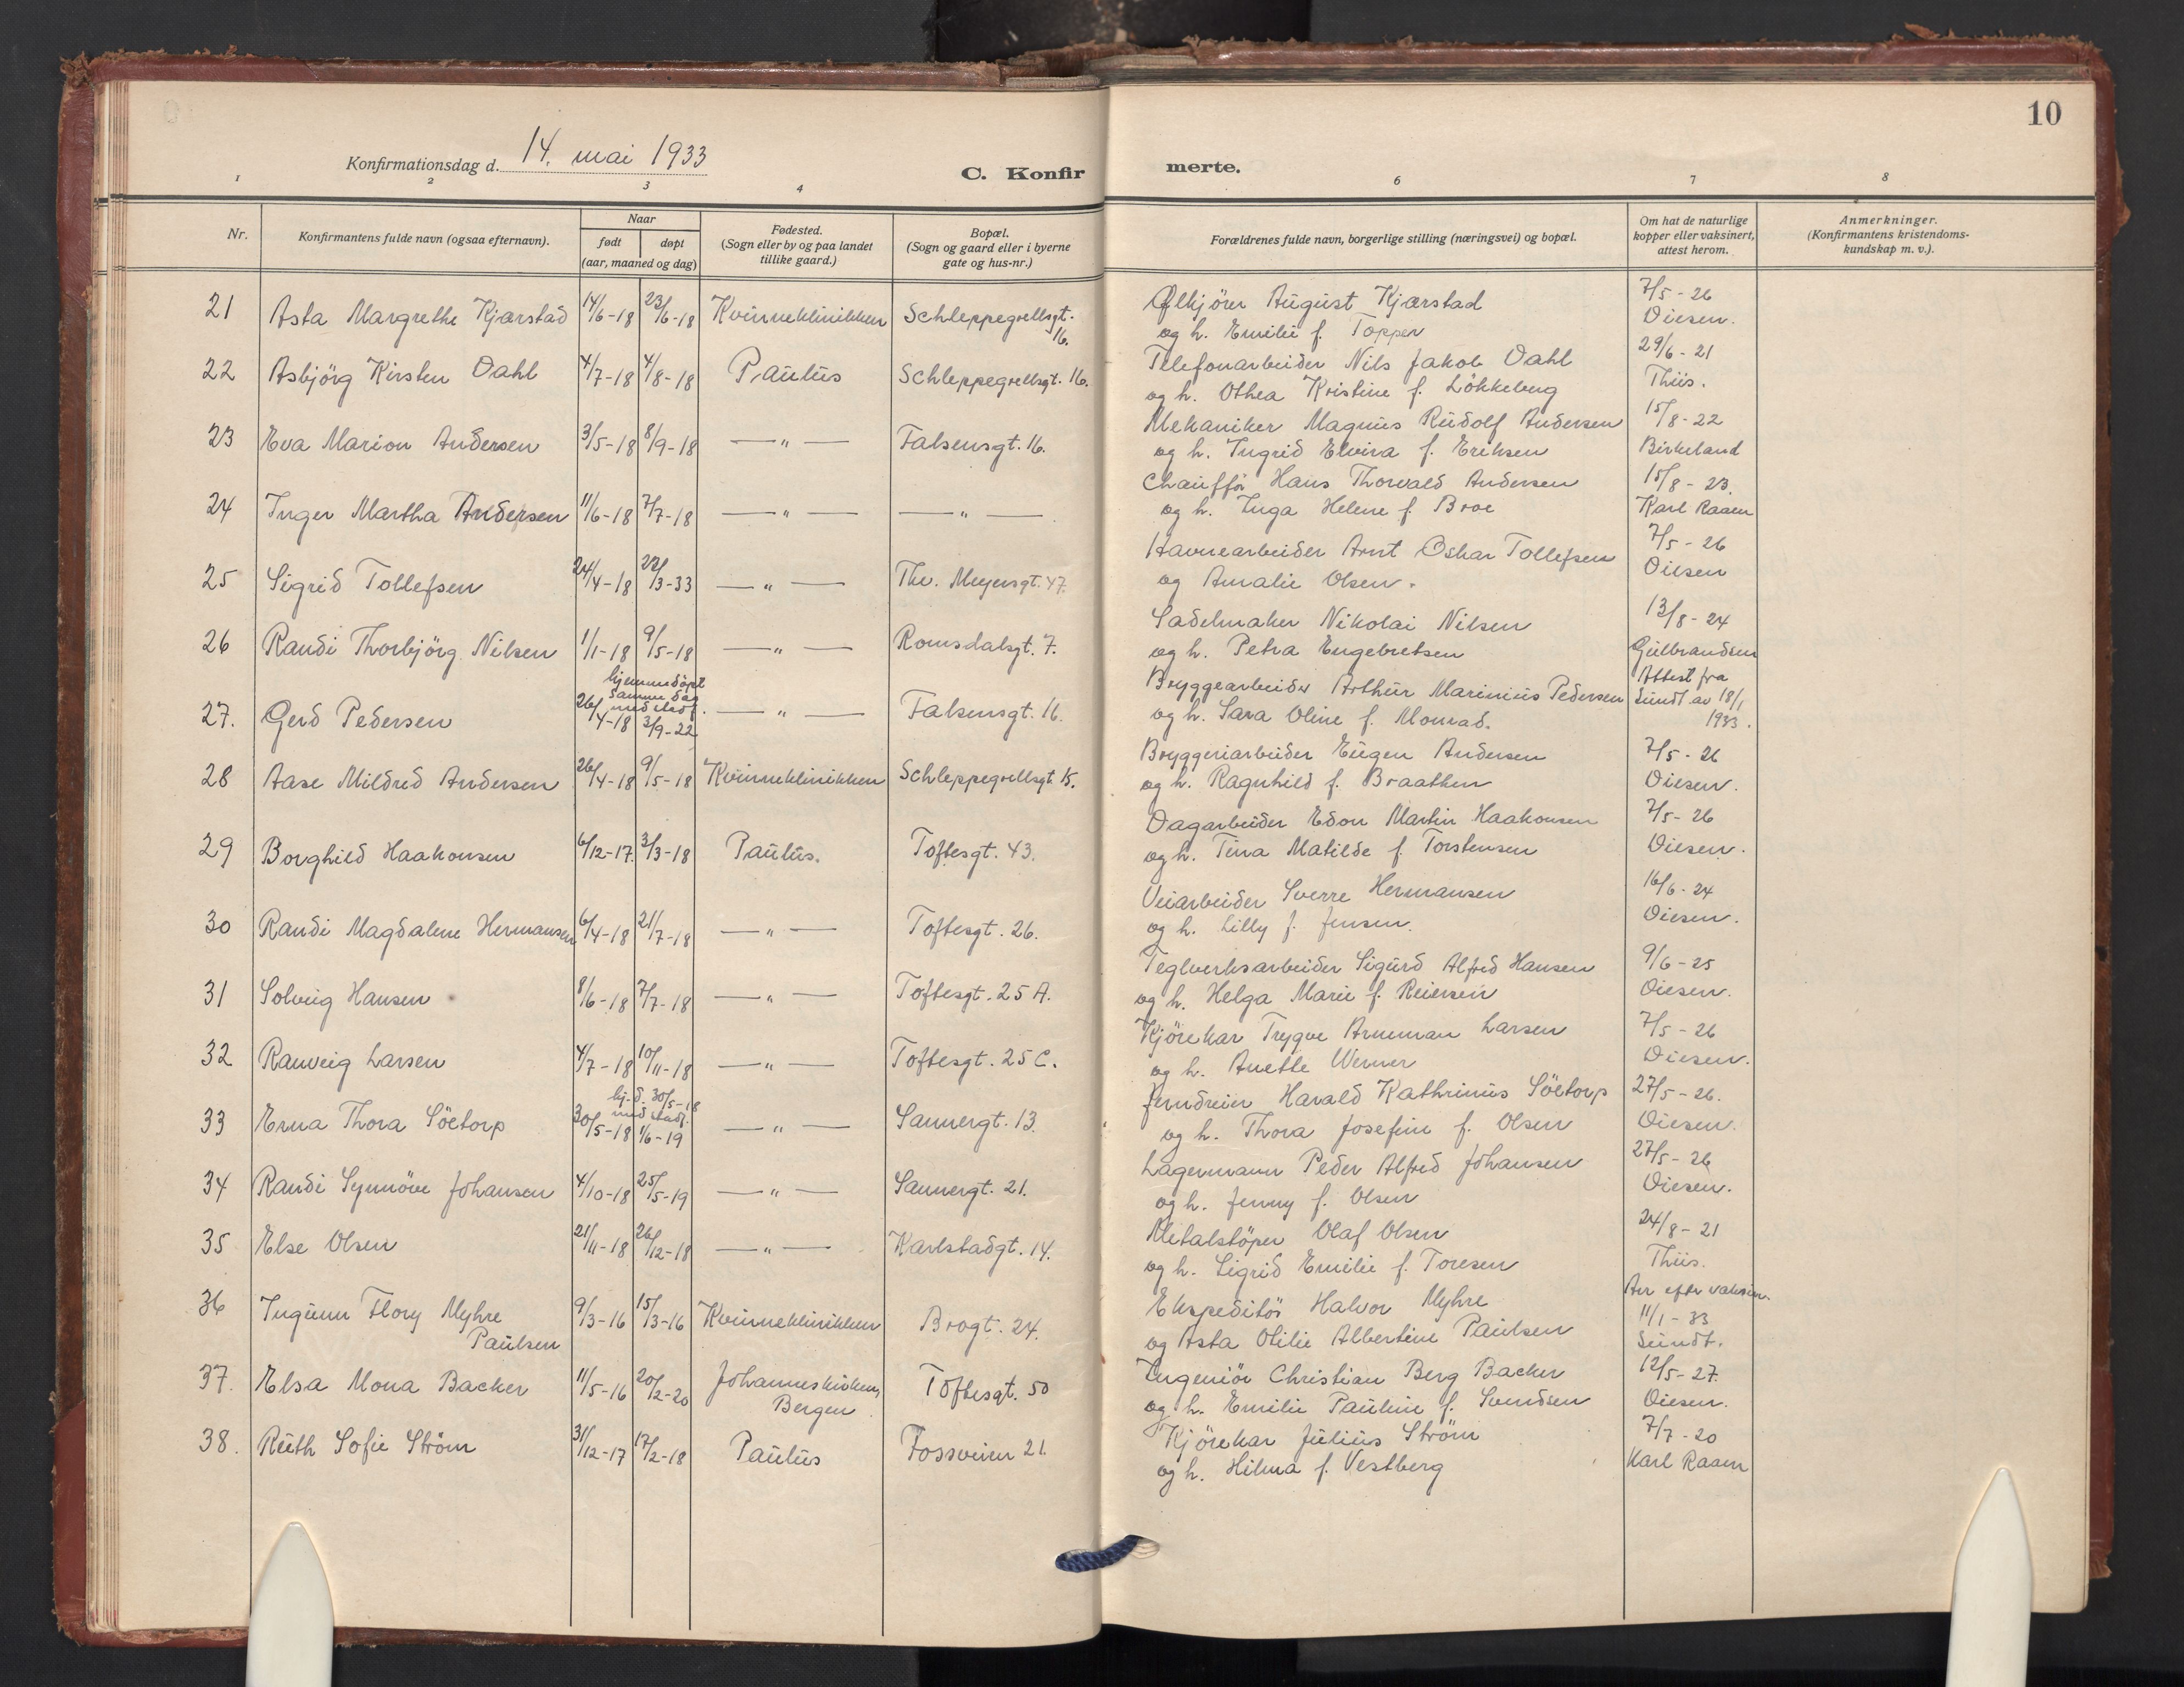 10
Konfirmationsdag d. 14. mai 1933
C. Konfir
merte.
1 2 3 4 6 7 8
Nr.
Konfirmantens fulde navn (ogsaa efternavn).
Naar
født
døpt
(aar, maaned og dag)
Fødested.
(Sogn eller by og paa landet
tillike gaard.)
Bopæl.
(Sogn og gaard eller i byerne
gate og hus-nr.)
Forældrenes fulde navn, borgerlige stilling (næringsvei) og bopæl.
Om hat de naturlige
kopper eller vaksinert,
attest herom.
Anmerkninger.
(Konfirmantens kristendoms-
kundskap m. v.).
21 Asta Margrethe Kjærstad 14/6-18 23/6-18 Kvinneklinikken Schleppegrellsgt. 16. Ølkjörer August Kjærstad 7/5-26
og h. Emilie f. Topper Oiesen.
22 Asbjörg Kirsten Dahl 4/7-18 4/8-18 Paulus Schleppegrellsgt. 16. Telefonarbeider Nils Jakob Dahl 29/6-21
og h. Othea Kristine f. Lökkeberg Thiis.
23 Eva Marion Andersen 3/5-18 8/9-18 —"— Falsensgt. 16. Mekaniker Magnus Rudolf Andersen 15/8-22
og h. Ingrid Elvira f. Eriksen Birkeland
24 Inger Martha Andersen 11/6-18 7/7-18 —"— —"— Chaufför Hans Thorvald Andersen 15/8-23.
og h. Inga Helene f. Broe Karl Raaen
25 Sigrid Tollefsen 24/4-18 22/3-33 —"— Thv. Meyersgt. 47. Havnearbeider Arnt Oskar Tollefsen 7/5-26
og Amalie Olsen. Oiesen
26 Randi Thorbjörg Nilsen 1/1-18 9/5-18 —"— Romsdalsgt. 7. Sadelmaker Nikolai Nilsen 13/8-24
og h. Petra Engebretsen Gulbrandsen
27. Gerd Pedersen 26/4-18 hjemmedöpt samme dag med stadf. 3/9-22 —"— Falsensgt. 16. Bryggearbeider Arthur Marinius Pedersen Attest fra
og h. Sara Oline f. Monrad. Sundt av 18/1 1933.
28 Aase Mildred Andersen 26/4-18 9/5-18 Kvinneklinikken Schleppegrellsgt. 15. Bryggeriarbeider Eugen Andersen 7/5-26
og h. Ragnhild f. Braathen Oiesen.
29 Borghild Haakonsen 6/12-17. 3/3-18 Paulus. Toftesgt. 43. Dagarbeider Edon Martin Haakonsen 7/5-26
og h. Tina Matilde f. Torstensen Oiesen.
30 Randi Magdalene Hermansen 6/4-18 21/7-18 —"— Toftesgt. 26. Veiarbeider Sverre Hermansen 16/6-24
og h. Lilly f. Jensen. Oiesen.
31 Solveig Hansen 8/6-18 7/7-18 —"— Toftesgt. 25 A. Teglverksarbeider Sigurd Alfred Hansen 9/6-25
og h. Helga Marie f. Reiersen Oiesen.
32 Ranveig Larsen 4/7-18 10/11-18 —"— Toftesgt. 25 C. Kjörekar Trygve Arneman Larsen 7/5-26
og h. Anette Werner Oiesen.
33 Erna Thora Söetorp 30/5-18 hj. d. 30/5-18 med stadf. 1/6-19 —"— Sannergt. 13. Jerndreier Harald Kathrinius Söetorp 27/5-26.
og h. Thora Josefine f. Olsen Oiesen.
34 Randi Synnöve Johansen 4/10-18 25/5-19 —"— Sannergt. 21. Lagermann Peder Alfred Johansen 27/5-26
og h. Jenny f. Olsen Oiesen.
35 Else Olsen 21/11-18 26/12-18 —"— Karlstadgt. 14. Metalstöper Olaf Olsen 24/8-21
og h. Sigrid Emilie f. Toresen Thiis.
36 Ingunn Flory Myhre 9/3-16 15/3-16 Kvinneklinikken Brogt. 24. Ekspeditör Halvor Myhre Arr efter vaksin.
Paulsen og Asta Otilie Albertine Paulsen 11/1-33 Sundt.
37. Elsa Mona Backer 11/5-16 20/2-20 Johanneskirken, Bergen. Toftesgt. 50 Ingeniör Christian Berg Backer 12/5-27.
og h. Emilie Pauline f. Svendsen Oiesen.
38. Ruth Sofie Ström 31/12-17 17/2-18 Paulus Fossveien 21. Kjörekar Julius Ström 7/7-20
og h. Hilma f. Vestberg Karl Raaen